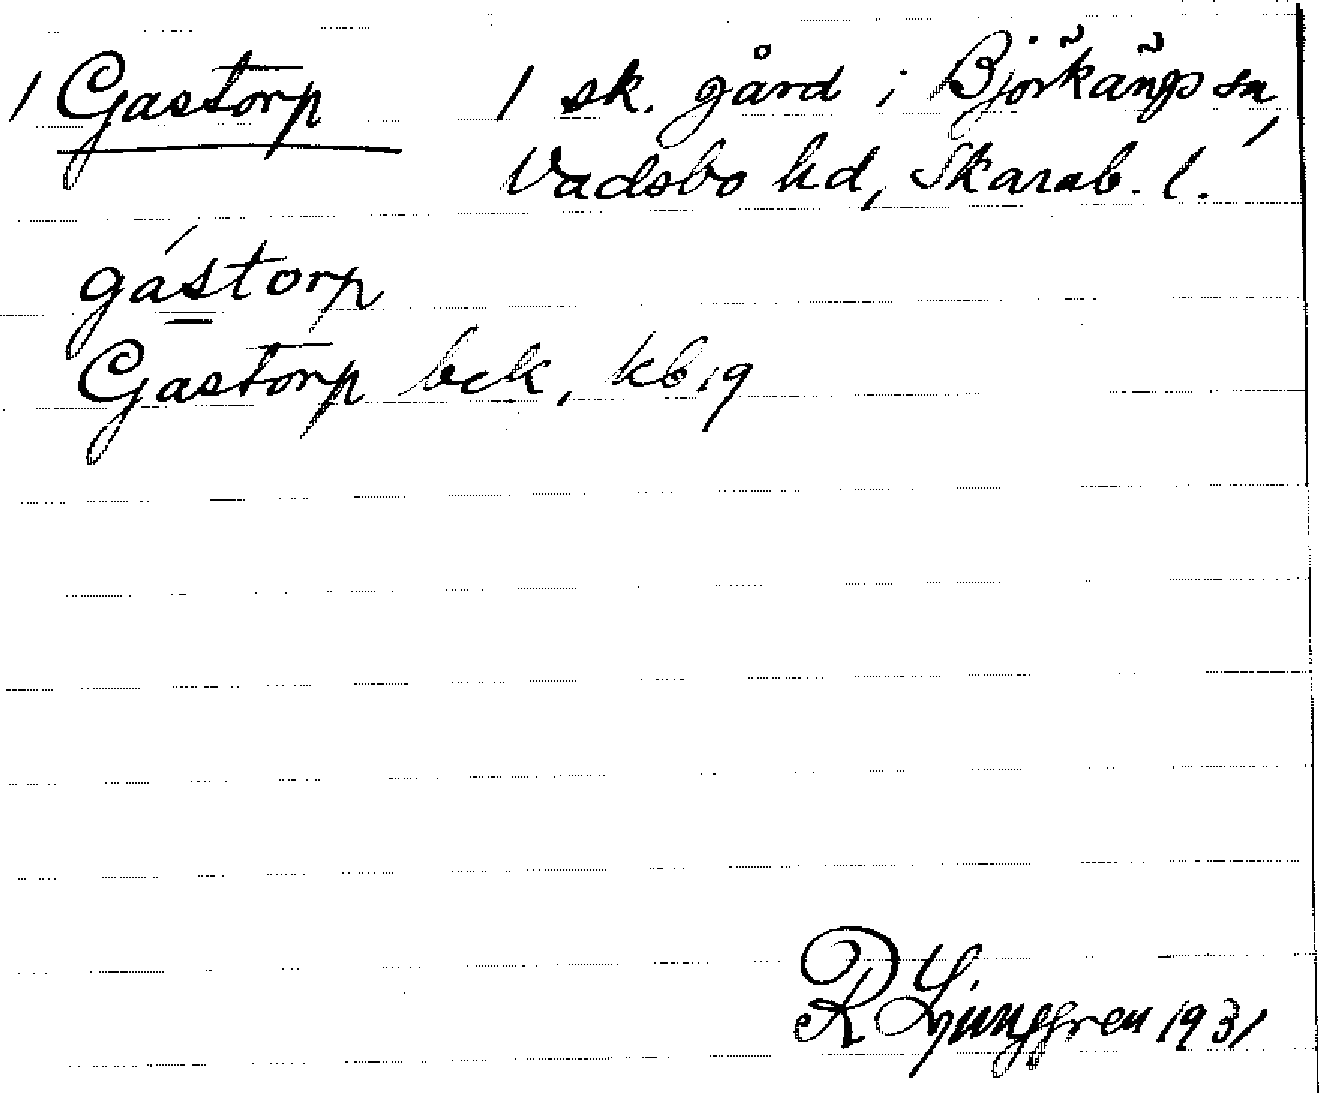 1 Gastorp 1 sk. gård i Björkängs sn,
Vadsbo hd, Skarab. l.
gástorp
Gastorp bck, kb, 19
R Ljunggren 1931